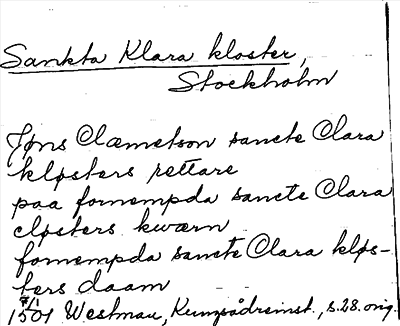 Sankta Klara kloster,
Stockholm
Jøns Clæmetson sancte Clara
kløsters rettare
paa fornempda sancte Clara
cløsters kwærn
fornempda sancte Clara kløs-
ters daam
1501 Westman, s. 28. orig.